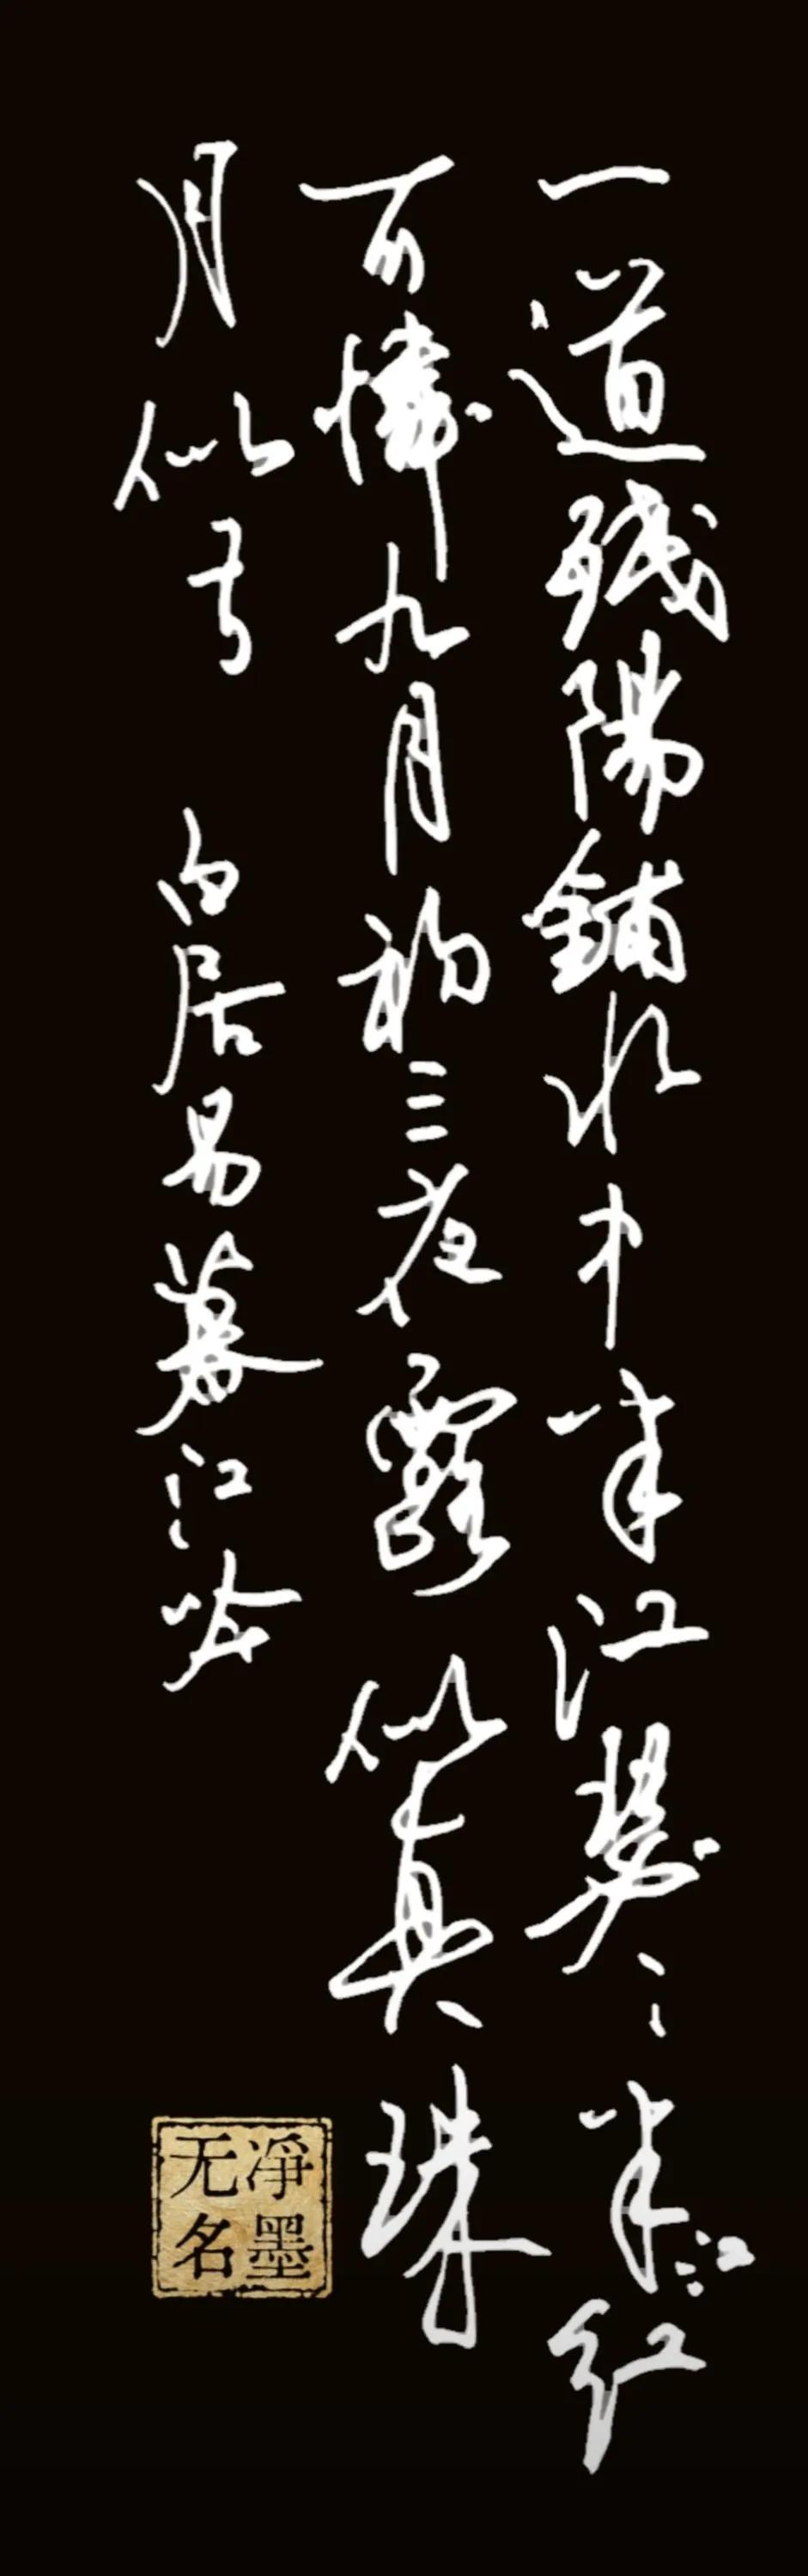 一道残陽鋪水中半江瑟〻半江紅
可憐九月初三夜露似真珠
月似弓 白居易暮江吟
淨墨
无名